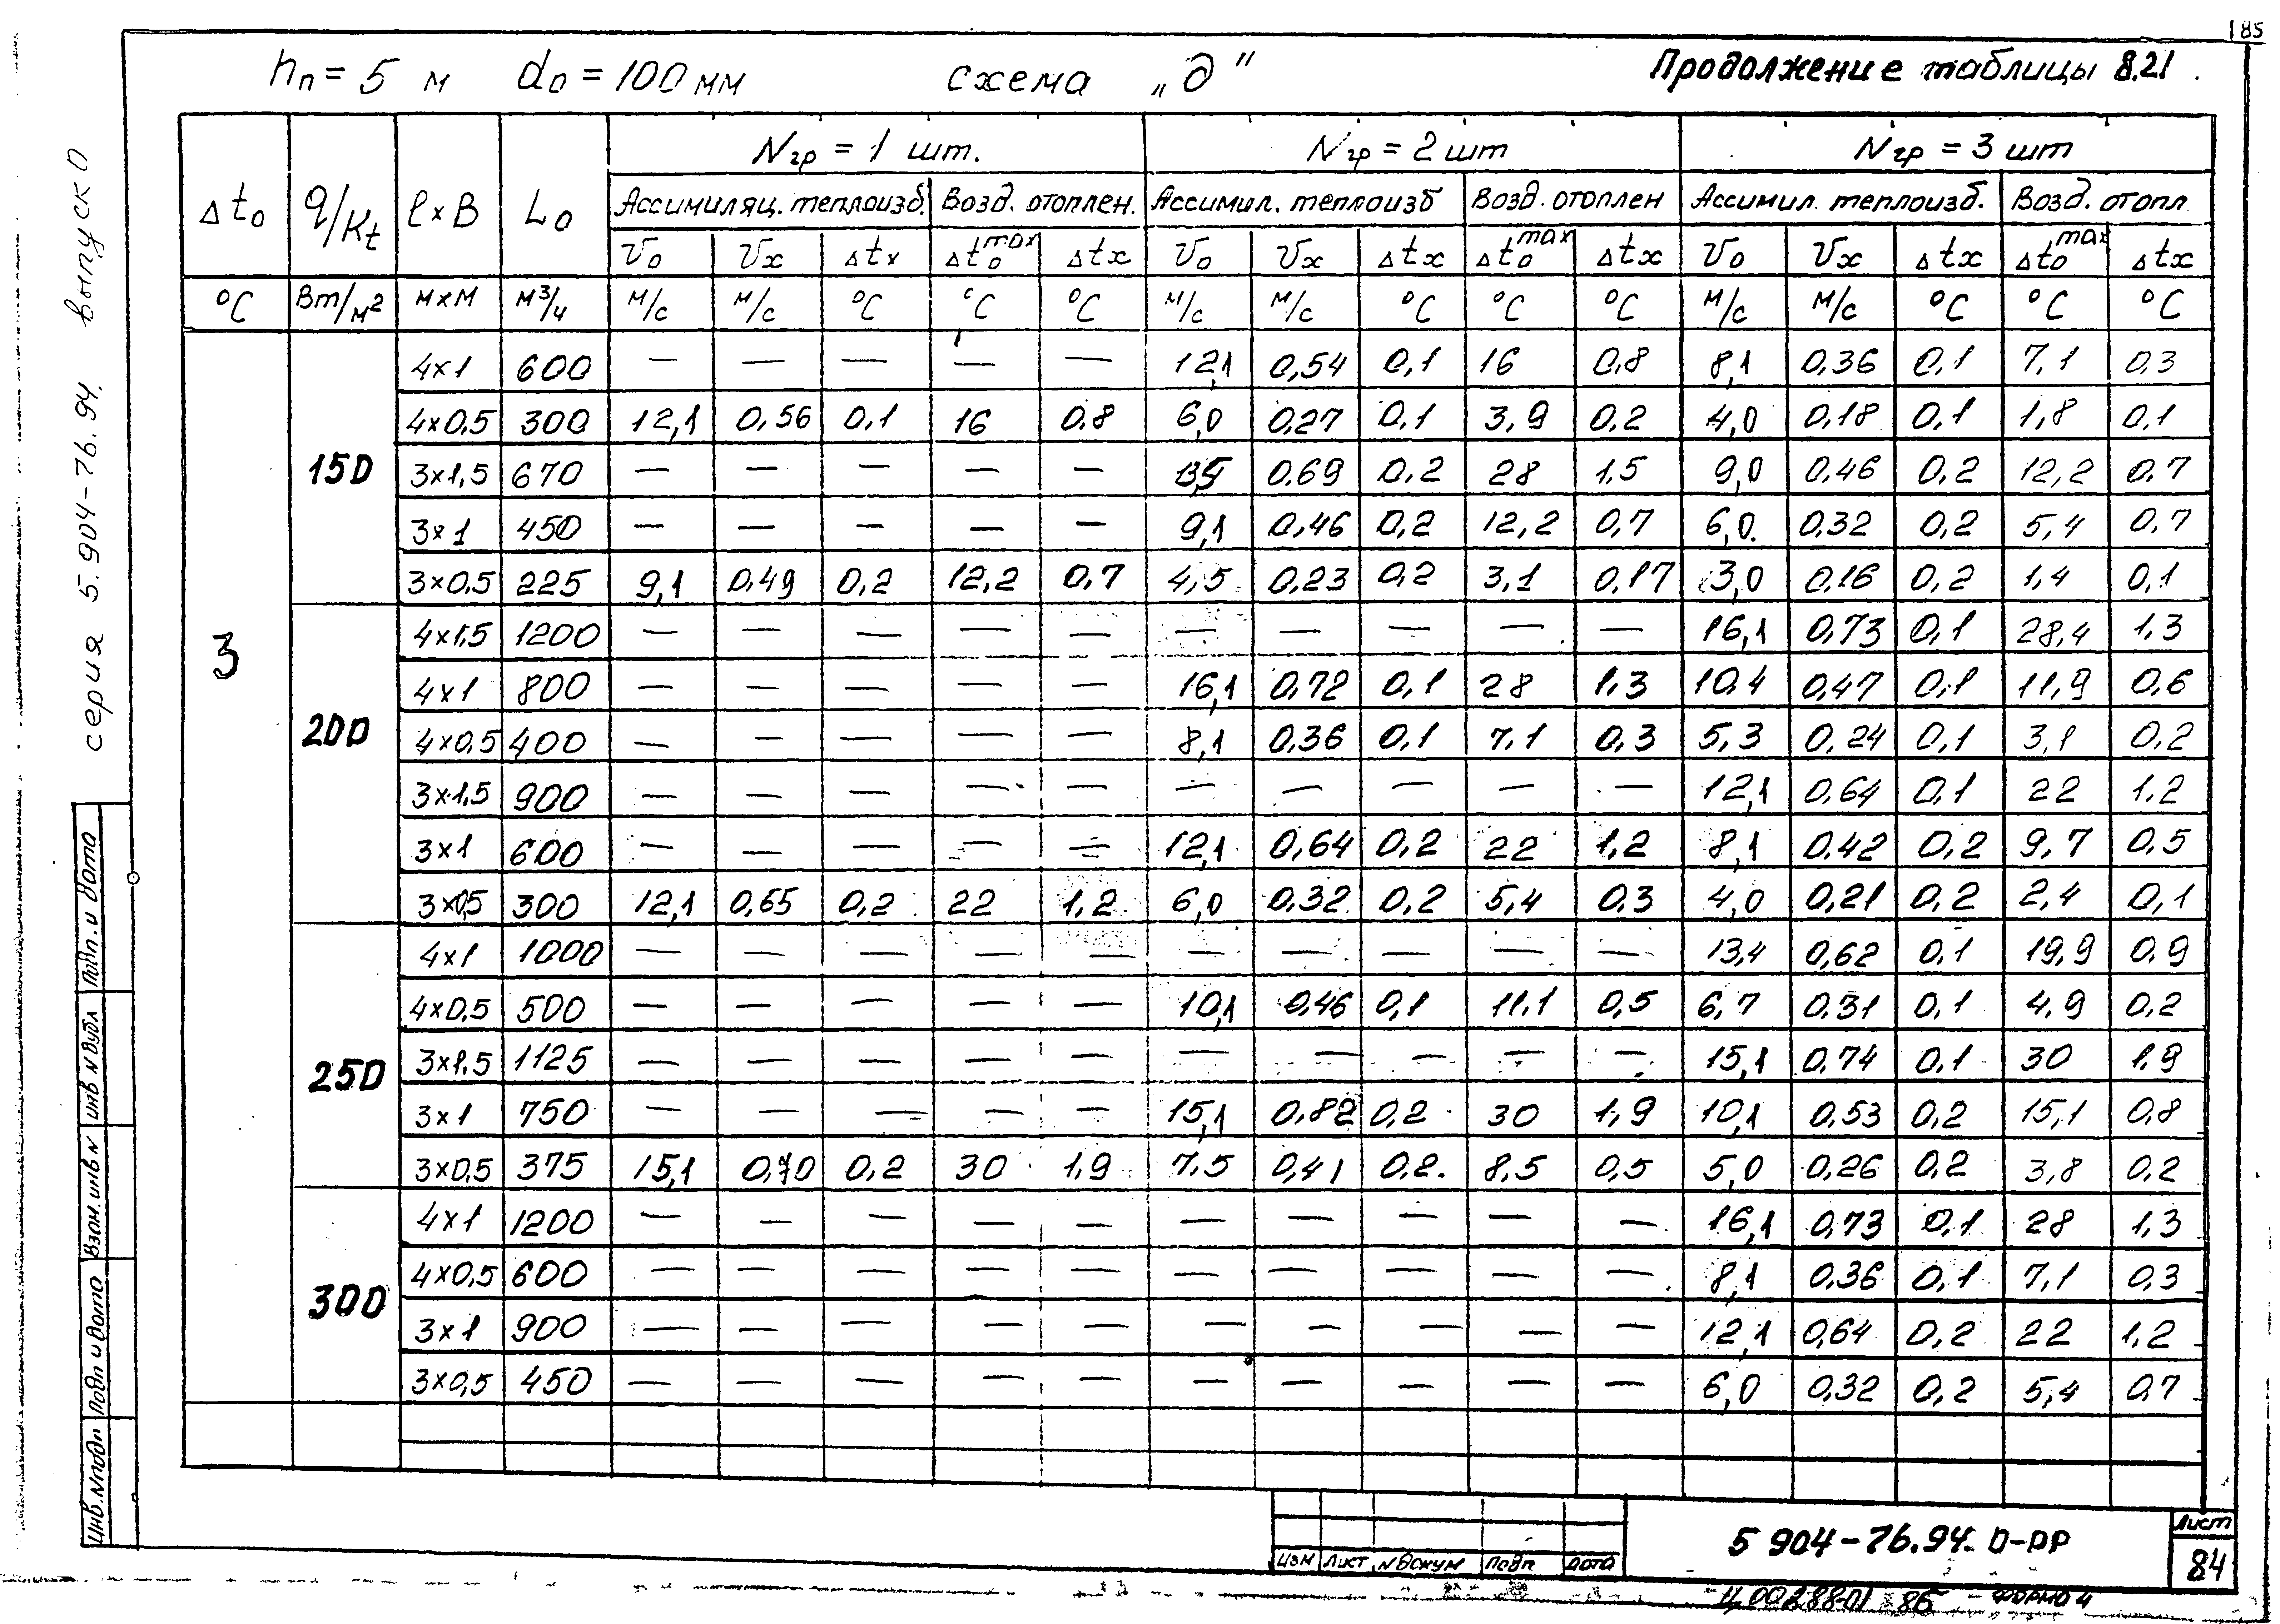 185
hп = 5 м dо = 100 мм схема „д" Продолжение таблицы 8.21
Δto q/Kt l×B Lo Nгр = 1 шт. Nгр = 2 шт Nгр = 3 шт
Ассимиляц. теплоизб. Возд. отоплен. Ассимил. теплоизб Возд. отоплен Ассимил. теплоизб. Возд. отопл
Vo Vx Δtx Δto max Δtx Vo Vx Δtx Δto max Δtx Vo Vx Δtx Δto max Δtx
°C Вт/м² м×м м³/ч м/с м/с °C °C °C м/с м/с °C °C °C м/с м/с °C °C °C
3
150
4×1 600 — — — — — 12,1 0,54 0,1 16 0,8 8,1 0,36 0,1 7,1 0,3
4×0,5 300 12,1 0,56 0,1 16 0,8 6,0 0,27 0,1 3,9 0,2 4,0 0,18 0,1 1,8 0,1
3×1,5 670 — — — — — 13,5 0,69 0,2 28 1,5 9,0 0,46 0,2 12,2 0,7
3×1 450 — — — — — 9,1 0,46 0,2 12,2 0,7 6,0 0,32 0,2 5,4 0,7
3×0,5 225 9,1 0,49 0,2 12,2 0,7 4,5 0,23 0,2 3,1 0,17 3,0 0,16 0,2 1,4 0,1
200
4×1,5 1200 — — — — — — — — — — 16,1 0,73 0,1 28,4 1,3
4×1 800 — — — — — 16,1 0,72 0,1 28 1,3 10,4 0,47 0,1 11,9 0,6
4×0,5 400 — — — — — 8,1 0,36 0,1 7,1 0,3 5,3 0,24 0,1 3,1 0,2
3×1,5 900 — — — — — — — — — — 12,1 0,64 0,1 22 1,2
3×1 600 — — — — — 12,1 0,64 0,2 22 1,2 8,1 0,42 0,2 9,7 0,5
3×0,5 300 12,1 0,65 0,2 22 1,2 6,0 0,32 0,2 5,4 0,3 4,0 0,21 0,2 2,4 0,1
250
4×1 1000 — — — — — — — — — — 13,4 0,62 0,1 19,9 0,9
4×0,5 500 — — — — — 10,1 0,46 0,1 11,1 0,5 6,7 0,31 0,1 4,9 0,2
3×1,5 1125 — — — — — — — — — — 15,1 0,74 0,1 30 1,9
3×1 750 — — — — — 15,1 0,82 0,2 30 1,9 10,1 0,53 0,2 15,1 0,8
3×0,5 375 15,1 0,70 0,2 30 1,9 7,5 0,41 0,2 8,5 0,5 5,0 0,26 0,2 3,8 0,2
300
4×1 1200 — — — — — — — — — — 16,1 0,73 0,1 28 1,3
4×0,5 600 — — — — — — — — — — 8,1 0,36 0,1 7,1 0,3
3×1 900 — — — — — — — — — — 12,1 0,64 0,2 22 1,2
3×0,5 450 — — — — — — — — — — 6,0 0,32 0,2 5,4 0,7
серия 5.904-76.94. выпуск 0
Инв.Nподп Подп и дата Взам.инв N инв N дубл Подп. и дата
изм лист N докум подп дата
5 904-76.94. 0-РР
Лист
84
Ц00288-01 86 - ФОРМА 4